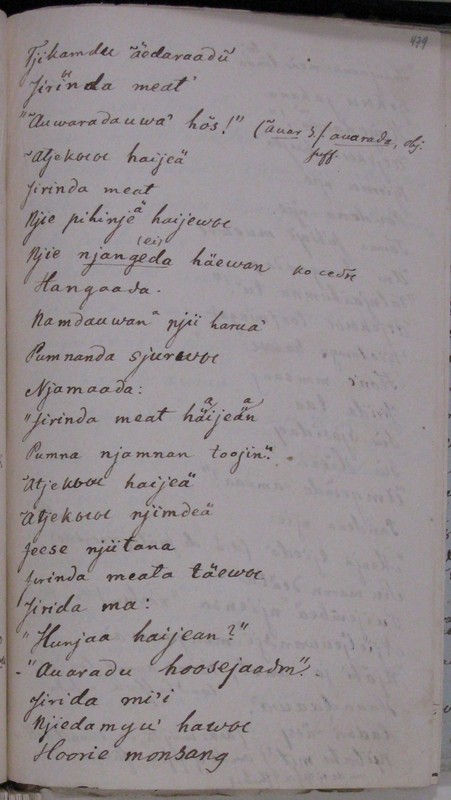 479
Tjikamdu äedaraadu
Jirinda meat'
"Auwaradauwa' hös!" (äuar 3 /. auarada, obj. suff.
Atjekoɯ haijeä
Jirinda meat
Njie pihinjeä haijewoc
Njie njangeda (ei) häewan
Hangaada.
Namdauwan njii harua'
Pumnanda sjurewoc
Njamaada:
"Jirinda meat häijeän
Pumna njamnan toojin".
Atjekoɯ haijeä
Atjekoɯ njimdeä
Jeese njiitana
Jirinda meata täewoc
Jirida ma:
"Hunjaa haijean?"
-"Auaradu hoosejaadm".
Jirida mi'i
Njiedamyu' hawoc
Hoorie monsang